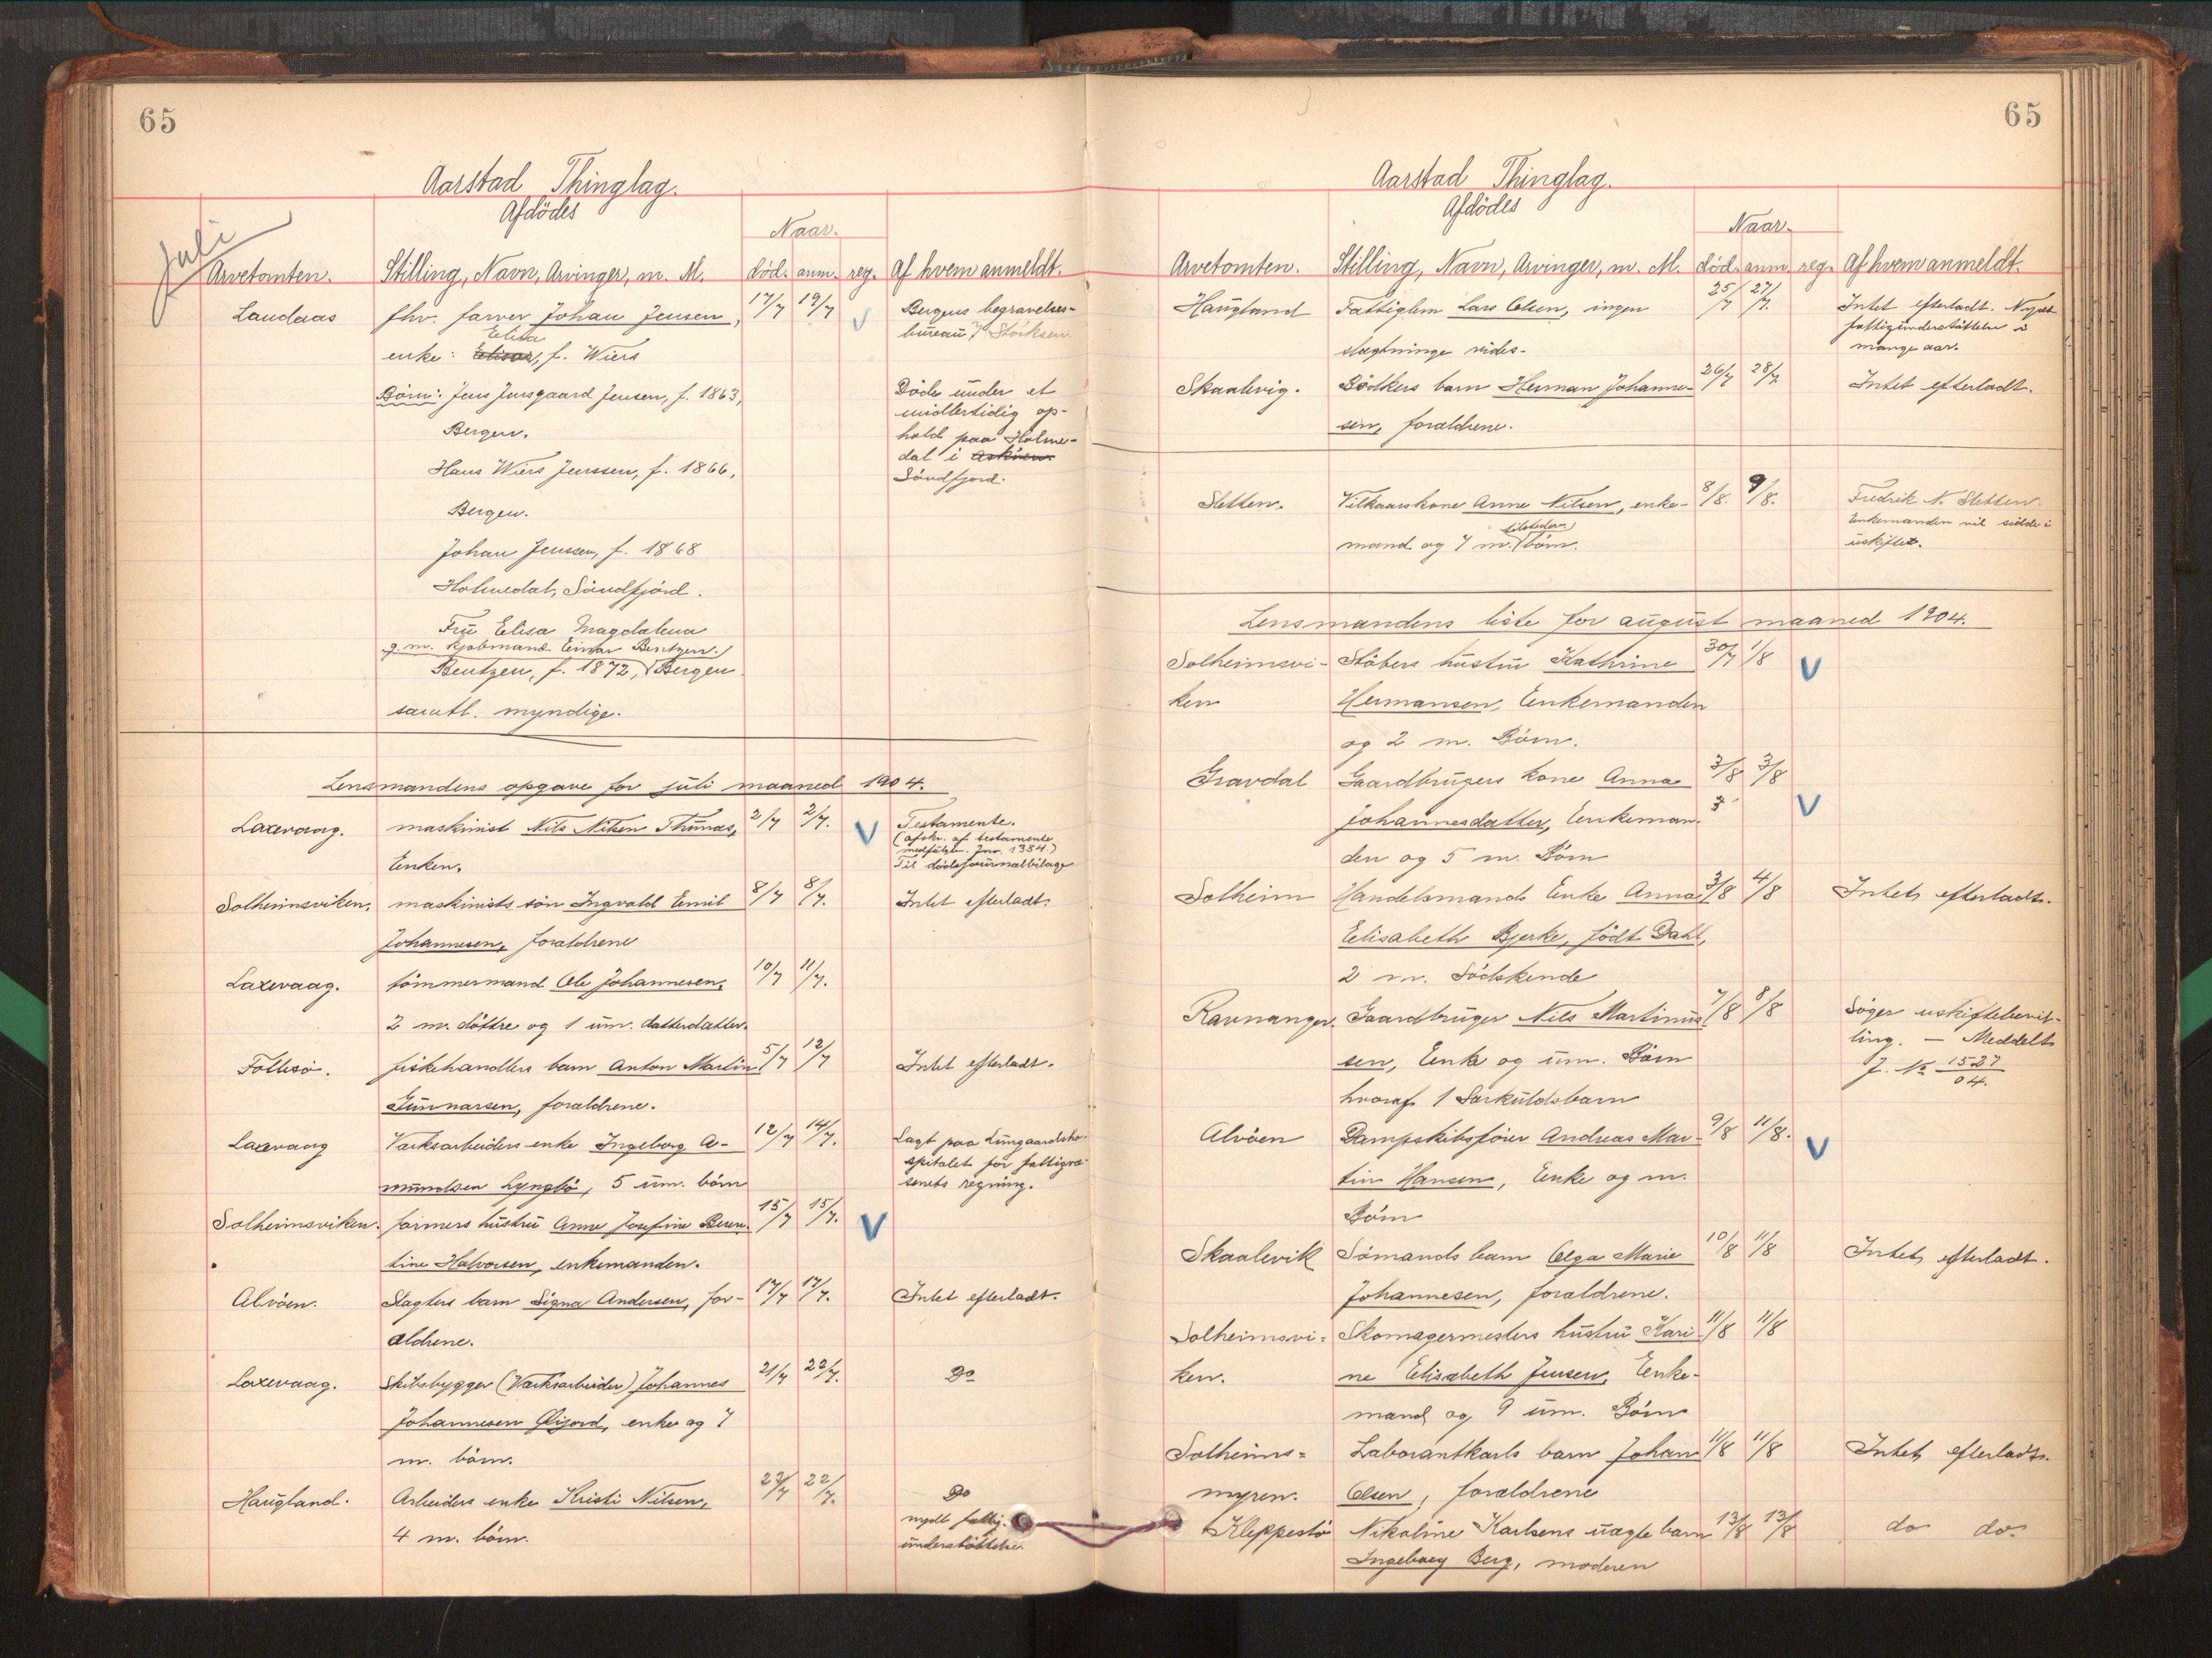 65
Aarstad Thinglag.
Afdödes
Naar.
Juli
Arvetomten. Stilling, Navn, Arvinger, m. M. död. anm. reg. Af hvem anmeldt.
Landaas fhv. farver Johan Jensen, 17/7 19/7 V Bergens begravelses-
Elisa bureau v/ Störksen
enke: Elisa, f. Wiers
Börn: Jens Jensgaard Jensen, f. 1863, Döde under et
midlertidig op-
Bergen. hold paa Holme-
dal i Askven
Hans Wiers Jenssen, f. 1866, Söndfjord.
Bergen.
Johan Jenssen, f. 1868
Holmedal, Söndfjord.
Fru Elisa Magdalena
g. m. kjøbmand Einar Bentzen
Bentzen, f. 1872, Bergen
samtl. myndige.
Lensmandens opgave for juli maaned 1904.
Laxevaag. maskinist Nils Nilsen Thunæs, 2/7 2/7. V Testamente.
(afskr. af testamente
medfølger. Jnr. 1384.)
Enken. Til dödsjournalbilag
Solheimsviken. maskinists sön Ingvald Emil 8/7 8/7. Intet efterladt.
Johannesen, forældrene
Laxevaag. tömmermand Ole Johannesen, 10/7 11/7.
2 m. döttre og 1 um. datterdatter.
Follesö. fiskehandlers barn Anton Martin 5/7 12/7 Intet efterladt.
Gunnarsen, forældrene.
Laxevaag Værksarbeiders enke Ingeborg A- 12/7 14/7. Lagt paa Lungaardsho-
spitalet for fattigvæ-
mundsen Lyngbö, 5 um. börn senets regning.
Solheimsviken. formers hustru Anne Josefine Beren- 15/7 15/7. V
tine Halvorsen, enkemanden.
Alvöen. Slagters barn Signa Andersen, for- 17/7 17/7. Intet efterladt.
ældrene.
Laxevaag. Skibsbygger (Værksarbeider) Johannes 21/7 22/7. Do
Johannesen Gjord, enke og 7
m. börn.
Haugland. Arbeiders enke Kristi Nilsen, 22/7 22/7. Do
nydt fattig-
4 m. börn. understöttelse.
65
Aarstad Thinglag.
Afdödes
Naar.
Arvetomten. Stilling, Navn, Arvinger, m. M. död. anm. reg. Af hvem anmeldt.
Haugland Fattiglem Lars Olsen, ingen 25/7 27/7. Intet efterladt. Nydt
fattigunderstöttelse i
slægtninge vides. mange aar.
Skaalevig. Bödkers barn Herman Johanne- 26/7 28/7 Intet efterladt.
sen, forældrene.
Sletten. Vilkaarskone Anne Nilsen, enke- 8/8. 9/8. Fredrik N. Sletten.
Enkemanden vil sidde i
mand og 7 m. börn. uskiftet.
Lensmandens liste for august maaned 1904.
Solheimsvi- Stöbers hustru Kathrine 30/7 1/8 V
ken Hermansen, Enkemanden
og 2 m. Börn.
Gravdal Gaardbrugers kone Anna 3/8 3/8
Johannesdatter, Enkeman- V
den og 5 m. Börn
Solheim Handelsmands Enke Anna 3/8 4/8 Intet efterladt.
Elisabeth Bjerke, födt Dahl,
2 m. Södskende
Ravnanger. Gaardbruger Nils Martinus- 7/8 8/8 Söger uskiftebevil-
ling. — Meddelt
sen, Enke og um. Börn J. No 1527/04.
hvoraf 1 Særkuldsbarn
Alvöen Dampskibsförer Andreas Mar- 9/8 11/8. V
tin Hansen, Enke og m.
Börn
Skaalevik Sömands barn Olga Marie 10/8 11/8 Intet efterladt.
Johannesen, forældrene.
Solheimsvi- Skomagermesters hustru Kari- 11/8 11/8
ken. ne Elisabeth Jensen, Enke-
mand og 9 um. Börn
Solheims- Laborantkarls barn Johan 11/8 11/8 Intet efterladt.
myren. Olsen, forældrene
Kleppestö Nikoline Karlsens uægte barn 13/8 13/8 do do.
Ingeborg Berg, moderen